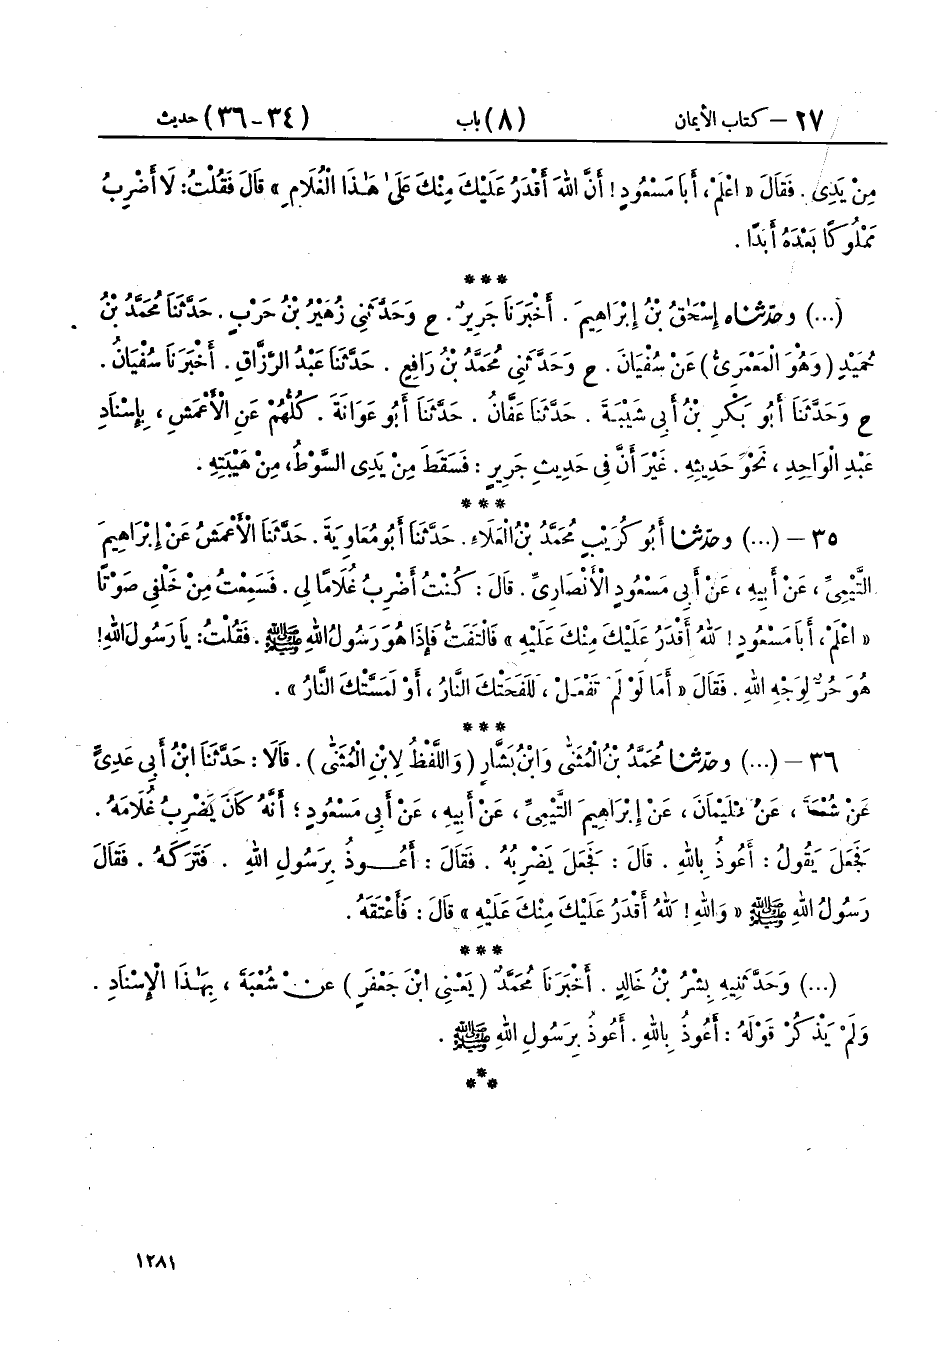 ٢٧ – كتاب الأيمان (٨) باب (٣٤-٣٦) حديث
مِنْ يَدِى . فَقَالَ « اعْلَمْ، أَبَا مَسْعُودٍ! أَنَّ اللهَ أَقْدَرُ عَلَيْكَ مِنْكَ عَلَىٰ هَٰذَا الْغُلَامِ » قَالَ فَقُلْتُ: لَا أَضْرِبُ
مَمْلُوكًا بَعْدَهُ أَبَدًا .
***
(...) وحدّثناه إِسْحَٰقُ بْنُ إِبْرَاهِيمَ . أَخْبَرَنَا جَرِيرٌ. ح وَحَدَّثَنِى زُهَيْرُ بْنُ حَرْبٍ . حَدَّثَنَا مُحَمَّدُ بْنُ
حُمَيْدٍ ( وَهُوَ الْمَعْمَرِىُّ ) عَنْ سُفْيَانَ . ح وَحَدَّثَنِى مُحَمَّدُ بْنُ رَافِعٍ . حَدَّثَنَا عَبْدُ الرَّزَّاقِ . أَخْبَرَنَا سُفْيَانُ .
ح وَحَدَّثَنَا أَبُو بَكْرِ بْنُ أَبِى شَيْبَةَ . حَدَّثَنَا عَفَّانُ . حَدَّثَنَا أَبُو عَوَانَةَ . كُلُّهُمْ عَنِ الْأَعْمَشِ ، بِإِسْنَادِ
عَبْدِ الْوَاحِدِ ، نَحْوَ حَدِيثِهِ . غَيْرَ أَنَّ فِى حَدِيثِ جَرِيرٍ : فَسَقَطَ مِنْ يَدِى السَّوْطُ، مِنْ هَيْبَتِهِ .
***
٣٥ – (...) وحدّثنا أَبُو كُرَيْبٍ مُحَمَّدُ بْنُ الْعَلَاءِ. حَدَّثَنَا أَبُو مُعَاوِيَةَ . حَدَّثَنَا الْأَعْمَشُ عَنْ إِبْرَاهِيمَ
التَّيْمِىِّ ، عَنْ أَبِيهِ ، عَنْ أَبِى مَسْعُودٍ الْأَنْصَارِىِّ . قَالَ : كُنْتُ أَضْرِبُ غُلَامًا لِى . فَسَمِعْتُ مِنْ خَلْفِى صَوْتًا
« اعْلَمْ، أَبَا مَسْعُودٍ! للهُ أَقْدَرُ عَلَيْكَ مِنْكَ عَلَيْهِ » فَالْتَفَتُّ فَإِذَا هُوَ رَسُولُ اللهِ ﷺ . فَقُلْتُ: يَا رَسُولَ اللهِ!
هُوَ حُرٌّ لِوَجْهِ اللهِ . فَقَالَ « أَمَا لَوْ لَمْ تَفْعَلْ ، لَلَفَحَتْكَ النَّارُ ، أَوْ لَمَسَّتْكَ النَّارُ » .
***
٣٦ – (...) وحدّثنا مُحَمَّدُ بْنُ الْمُثَنَّىٰ وَابْنُ بَشَّارٍ ( وَاللَّفْظُ لِابْنِ الْمُثَنَّىٰ ) . قَالَا : حَدَّثَنَا ابْنُ أَبِى عَدِىٍّ
عَنْ شُعْبَةَ ، عَنْ سُلَيْمَانَ ، عَنْ إِبْرَاهِيمَ التَّيْمِىِّ ، عَنْ أَبِيهِ ، عَنْ أَبِى مَسْعُودٍ ؛ أَنَّهُ كَانَ يَضْرِبُ غُلَامَهُ .
فَجَعَلَ يَقُولُ : أَعُوذُ بِاللهِ . قَالَ : فَجَعَلَ يَضْرِبُهُ . فَقَالَ : أَعُـــوذُ بِرَسُولِ اللهِ . فَتَرَكَهُ . فَقَالَ
رَسُولُ اللهِ ﷺ « وَاللهِ ! للهُ أَقْدَرُ عَلَيْكَ مِنْكَ عَلَيْهِ » قَالَ : فَأَعْتَقَهُ .
***
(...) وَحَدَّثَنِيهِ بِشْرُ بْنُ خَالِدٍ . أَخْبَرَنَا مُحَمَّدٌ ( يَعْنِى ابْنَ جَعْفَرٍ ) عَنْ شُعْبَةَ ، بِهَٰذَا الْإِسْنَادِ .
وَلَمْ يَذْكُرْ قَوْلَهُ : أَعُوذُ بِاللهِ . أَعُوذُ بِرَسُولِ اللهِ ﷺ .
***
١٢٨١